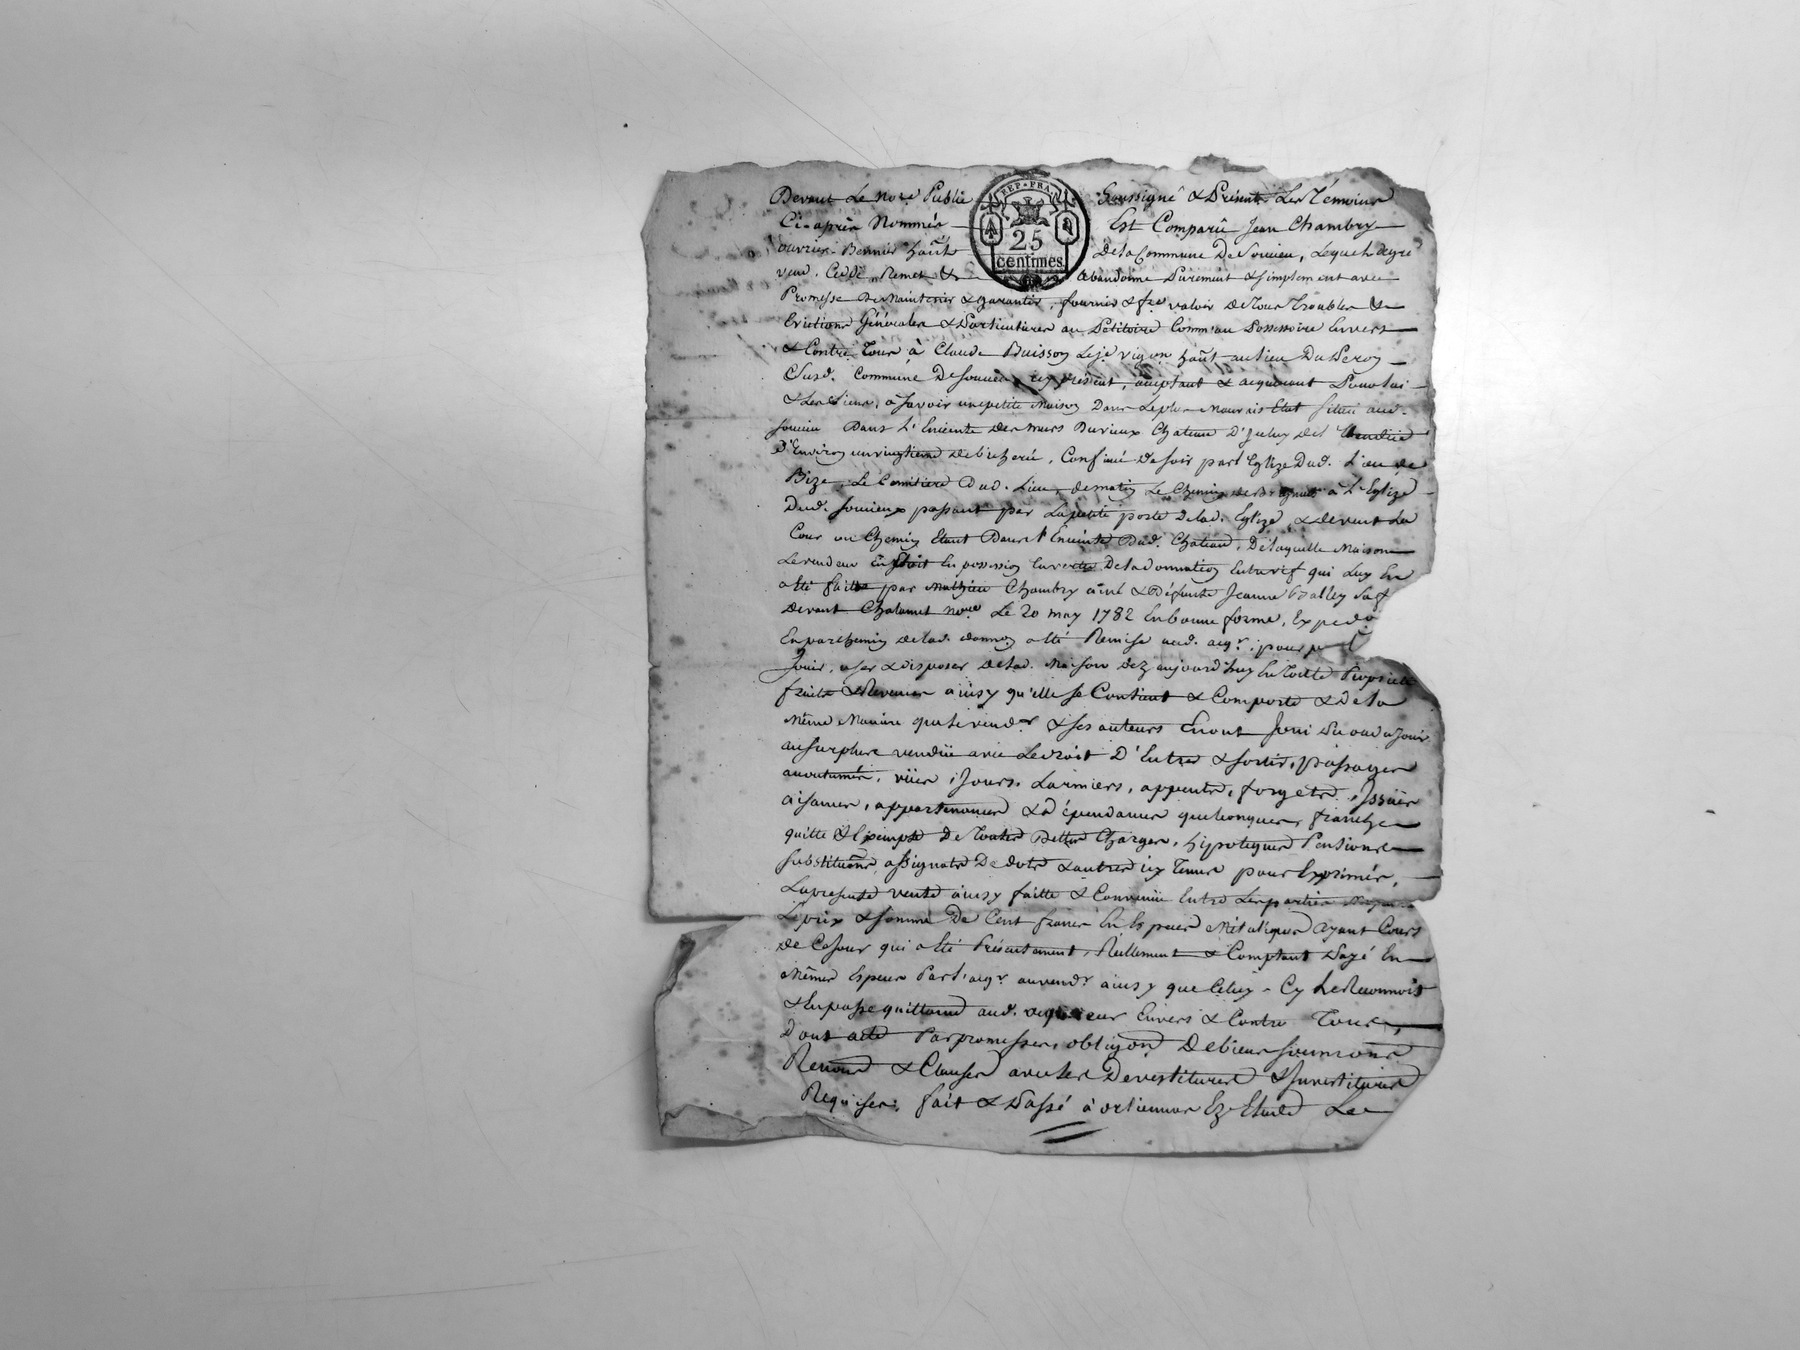 Devant Le No.re Public Soussigné & Présents Les Témoins
REP. FRA.
25
centimes
Ci-après Nommés Est Comparû Jean Chambry
ouvrier Bonnier hañt dela Commune De Soucieu, Lequel degré
vend, Cede, Remet & Abandonne Purement & simplement avec
Promesse De Maintenir & garantir, fournir & f.re valoir De Tous Troubles &
Evictions Générales & Particulieres au Pétitoire Comm'au Possessoire Envers
& Contre Tous à Claude Buisson Leje vigon hañt au lieu Du Peron
Susd. Commune De Soucieu icy présent, acceptant & acquerant Pour lui
& Les Siens, a Savoir une petite Maison Dans Le plus Mauvais Etat Située aud.
Soucieu Dans L'Enceinte Des Murs Du vieux Chateau
D'Environ un vingtieme de bicheré, Confiné De soir par l'Eglize Dud. Lieu de
Bize, Le Cimitiere Dud. Lieu, de matin Le Chemin de à L'Eglize
Dud. Soucieux passant par La petite porte De lad. Eglize, & devant La
Cour ou Chemin Etant Dans l'Enceinte Dud. Chateau, De laquelle Maison
Le vendeur En Etoit En possession En vertu De la donnation Entre vif qui Luy En
a Eté faitte par Mathieu Chambry ainé & Défunte Jeanne
Devant Chalamet No.re Le 20 may 1782 En bonne forme, Expedo
En parchemin de lad. donnon a Eté Remise aud. aqr. pour p
Jouir, user & disposer De lad. Maison dez aujourd'huy En Toutte Propriété
fruits & Revenus ainsy qu'elle se Contient & Comporte & De la
Même Maniere que le vendr & ses auteurs En ont Joui Du oud a Jouir
au surplus vendüe avec Le droit D'Entrer & sortir, passages
accoutumés, vües, Jours, Larmiers, appents, forgets, Issües
aisances, appartenances & Dépendances quelconques, franche
quitte & Exempte De Toutes Dettes Charges, hipoteques Pensions
substituons, assignats De dots & autres icy Tenus pour Exprimés,
La presente vente ainsy faitte & Convenüe Entre Les parties Moyen.
Le prix & somme De Cent francs En Especes Métaliques Ayant Cours
De Ce Jour qui a Eté Présentement, Réellement & Comptant Payé En
Mêmes Especes Par l'aqr. au vendr. ainsy que Celuy-Cy Le Reconnoit
& En passe quittance aud. acquereur Envers & Contre Tous,
Dont acte Par promesses, obligon De biens soumons
Renons & Clauses avec les Devestitures & Investitures
Requises, fait & Passé à orlienas Ez Etude Le